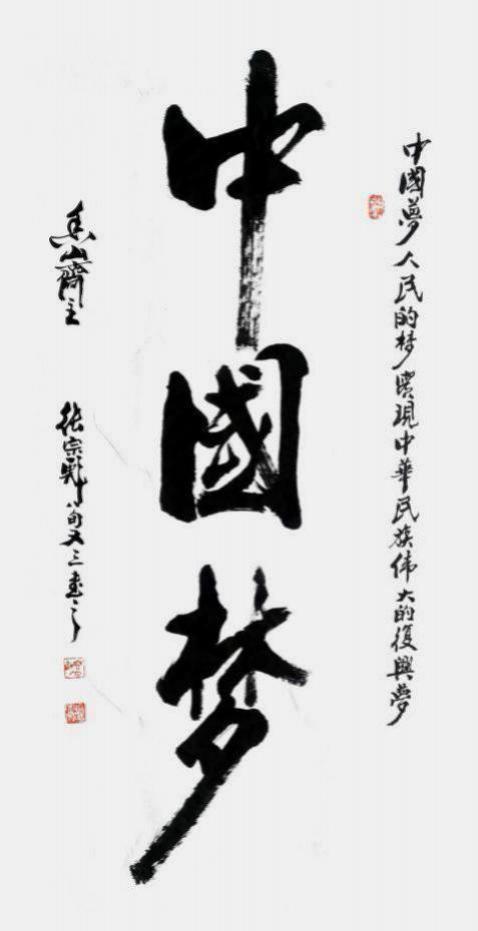 中國夢人民的梦實現中華民族伟大的復興夢
中國梦
山齋主 張宗彪八旬又三書之